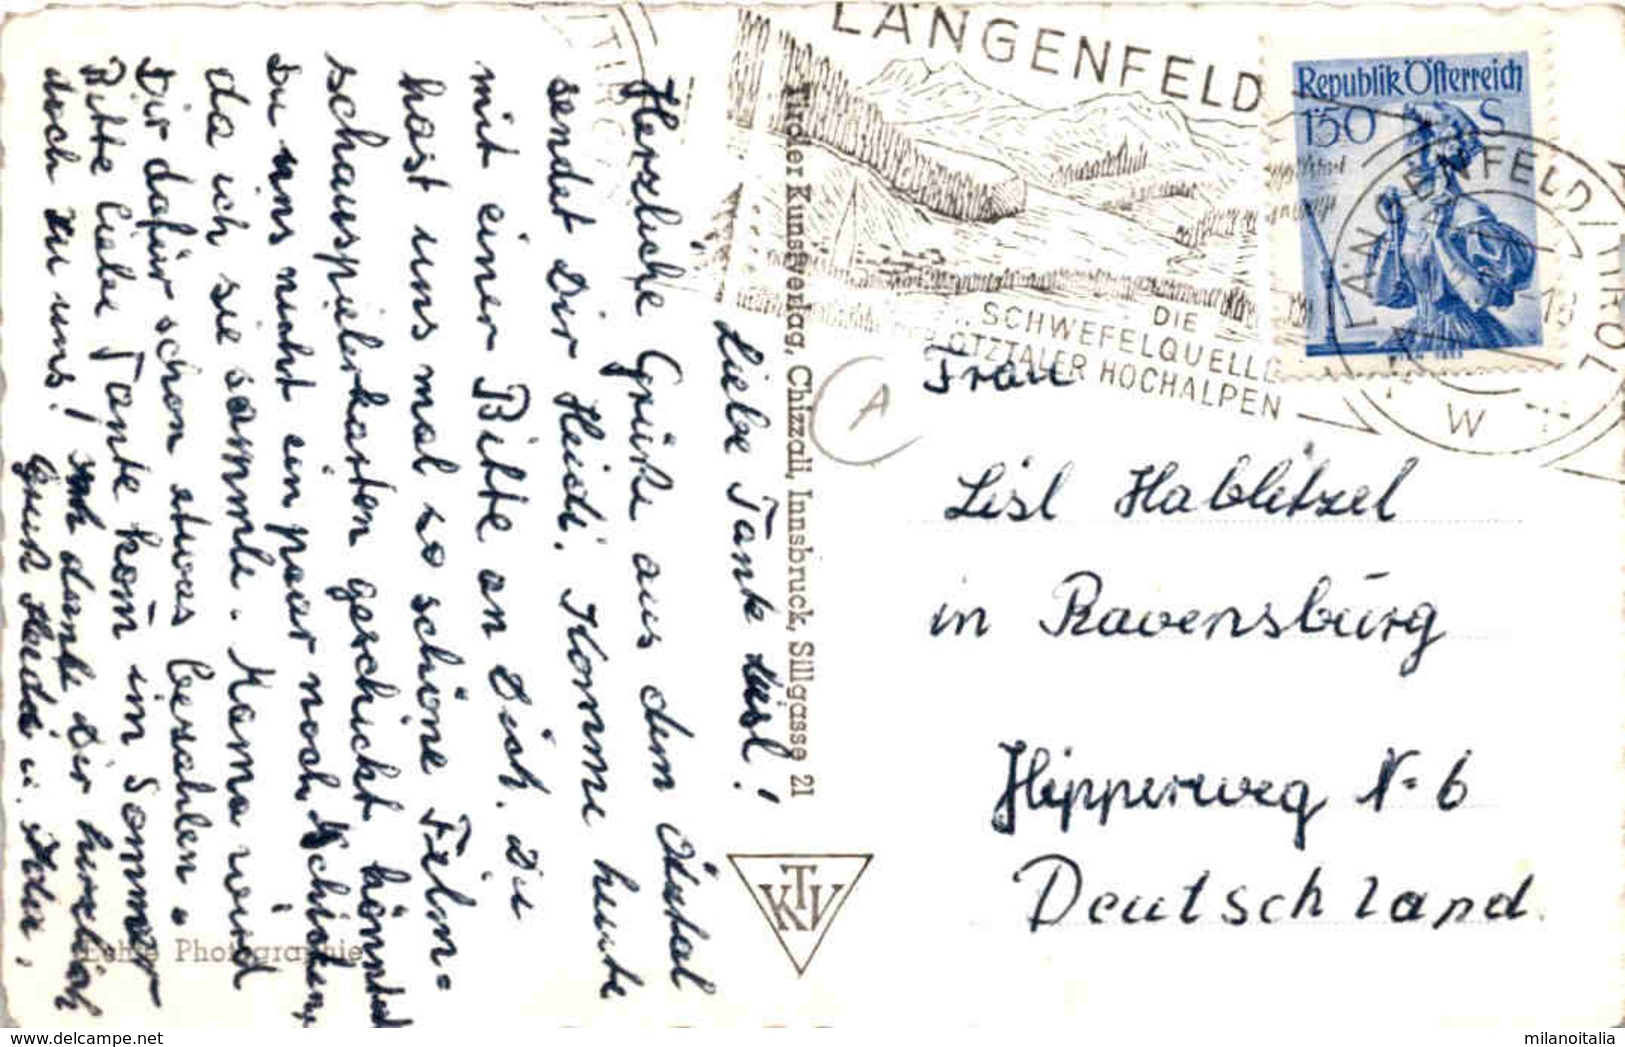 Liebe Tante Lisl!
Herzliche Grüße aus dem Ötztal
sendet Dir Heidi. Komme heute
mit einer Bitte an Dich. Du
hast uns mal so schöne Film=
schauspielerkarten geschickt könntest
Du uns nicht ein paar noch schicken,
da ich sie sammle. Mama wird
Dir dafür schon etwas bezahlen.
Bitte liebe Tante kom im Sommer
doch zu uns! Ich danke Dir herzlich
Gruß Heidi u.
Echte Photographie
Tiroler Kunstverlag, Chizzali, Innsbruck, Sillgasse 21
KTV
LÄNGENFELD
DIE
SCHWEFELQUELLE
DER ÖTZTALER HOCHALPEN
Republik Österreich
1'50 S
LÄNGENFELD TIROL
A
Frau
Lisl Hablitzel
in Ravensburg
Hipperweg N= 6
Deutschland.
milanoitalia